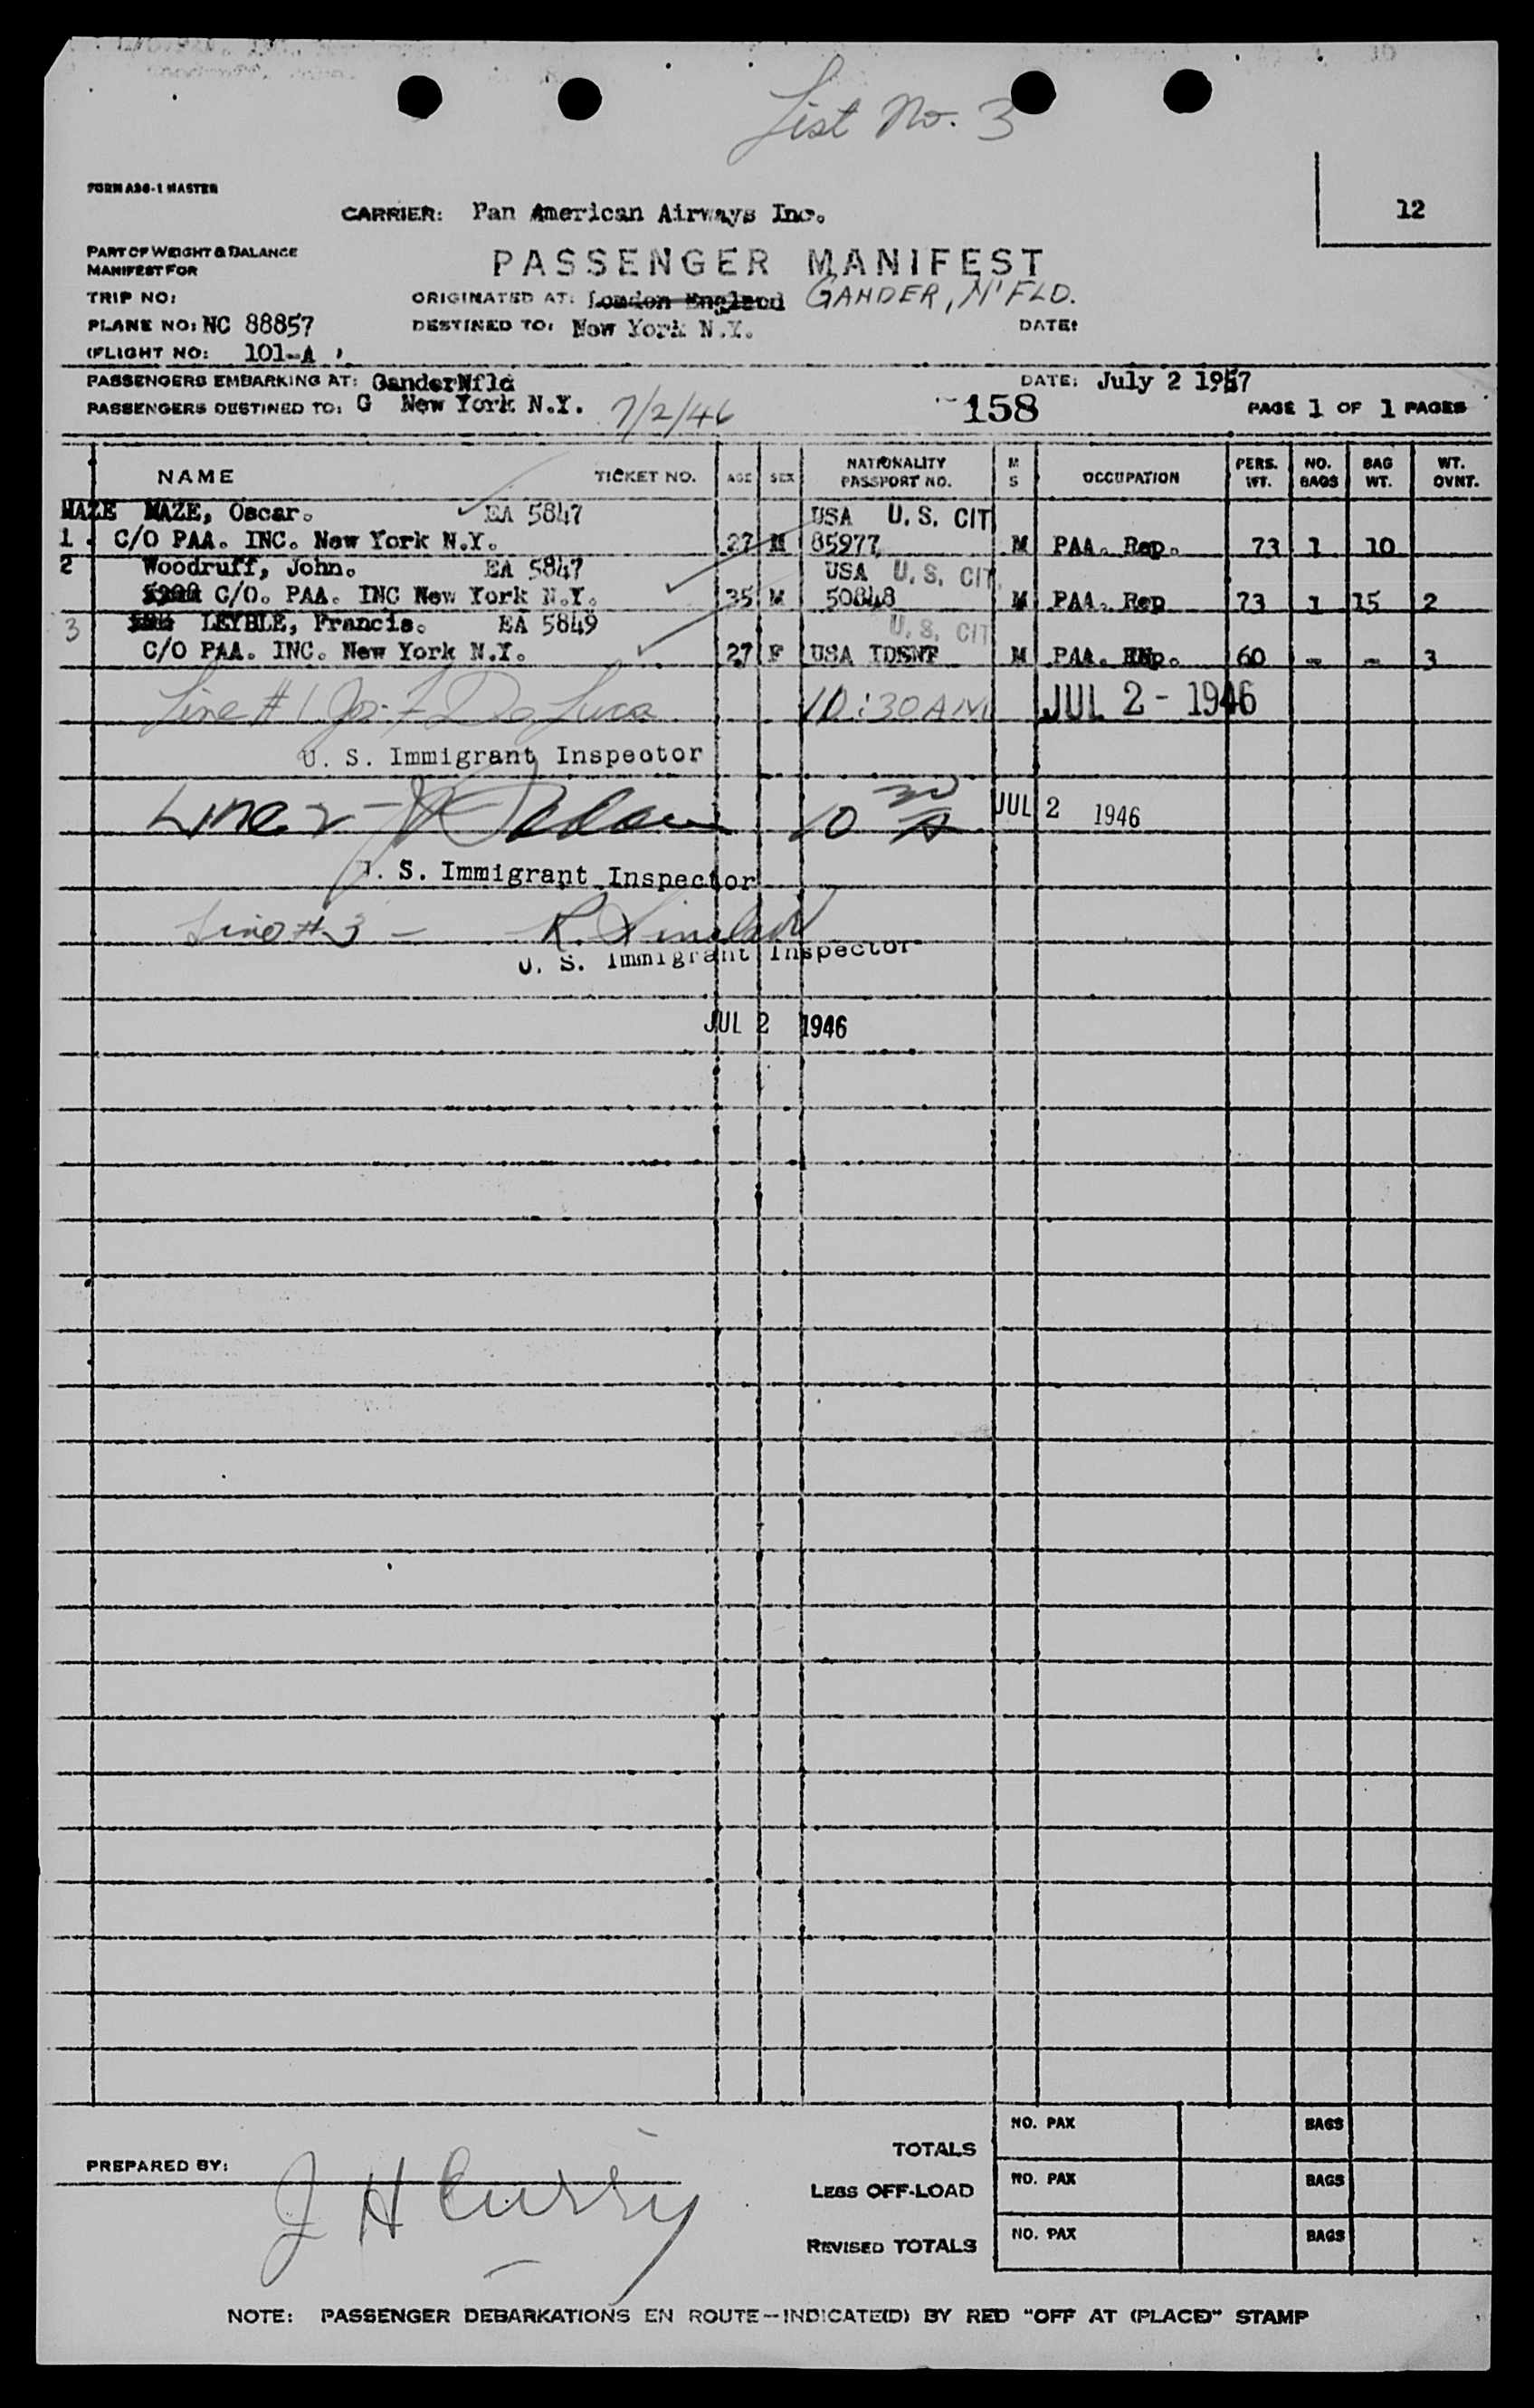 List No. 3
FORM A36-1 MASTER
CARRIER: Pan American Airways Inc.
12
PART OF WEIGHT & BALANCE
MANIFEST FOR
PASSENGER MANIFEST
TRIP NO:
ORIGINATED AT: London England GANDER, N'FLD.
PLANE NO: NC 88857
DESTINED TO: New York N.Y.
DATE:
(FLIGHT NO: 101-A
PASSENGERS EMBARKING AT: GanderNfld
DATE: July 2 1957
PASSENGERS DESTINED TO: G New York N.Y. 7/2/46
158
PAGE 1 OF 1 PAGES
NAME TICKET NO. AGE SEX NATIONALITY PASSPORT NO. M S OCCUPATION PERS. WT. NO. BAGS BAG WT. WT. OVNT.
MAZE MAZE, Oscar. EA 5847 USA U.S. CIT
1 C/O PAA. INC. New York N.Y. 27 M 85977 M PAA. Rep. 73 1 10
2 Woodruff, John. EA 5847 USA U.S. CIT
C/O. PAA. INC New York N.Y. 35 M 50848 M PAA. Rep 73 1 15 2
3 LEYBLE, Francis. EA 5849 U.S. CIT
C/O PAA. INC. New York N.Y. 27 F USA IDSNT M PAA. 60 - - 3
Line #1 Jos. F. De Luca 10:30 AM JUL 2 - 1946
U. S. Immigrant Inspector
Line 2 - 10 30 A JUL 2 1946
U. S. Immigrant Inspector
Line #3 - R. Sinclair
U. S. Immigrant Inspector
JUL 2 1946
NO. PAX BAGS
TOTALS
PREPARED BY: J H Curry
NO. PAX BAGS
LESS OFF-LOAD
NO. PAX BAGS
REVISED TOTALS
NOTE: PASSENGER DEBARKATIONS EN ROUTE-INDICATE(D) BY RED "OFF AT (PLACE)" STAMP